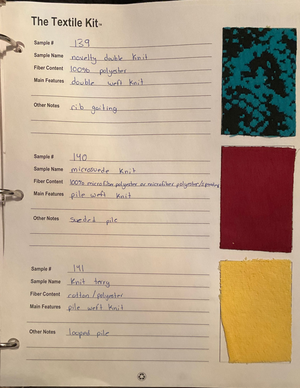 The Textile Kit™
Sample # 139
Sample Name novelty double knit
Fiber Content 100% polyester
Main Features double weft knit
Other Notes rib gaiting
Sample # 140
Sample Name microsuede knit
Fiber Content 100% microfiber polyester or microfiber polyester/spandex
Main Features pile weft knit
Other Notes sueded pile
Sample # 141
Sample Name Knit terry
Fiber Content cotton/polyester
Main Features pile weft knit
Other Notes looped pile